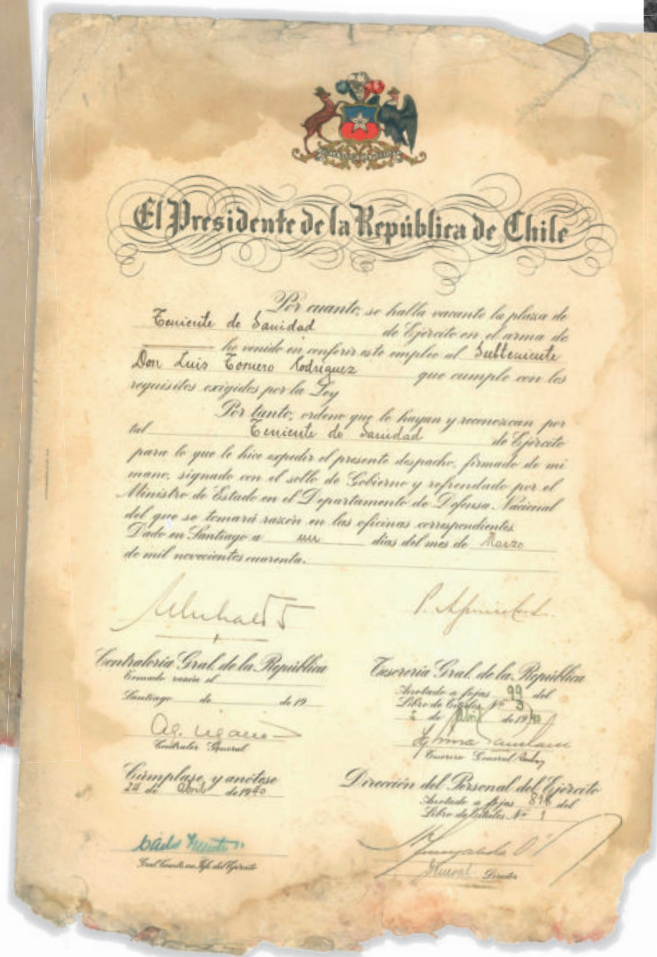 El Presidente de la República de Chile
Por cuanto, se halla vacante la plaza de
Teniente de Sanidad de Ejército en el arma de
he venido en conferir este empleo al Subteniente
Don Luis Tornero Rodriguez que cumple con los
requisitos exigidos por la Ley
Por tanto, ordeno que le hayan y reconozcan por
tal Teniente de Sanidad de Ejército
para lo que le hice expedir el presente despacho, firmado de mi
mano, signado con el sello de Gobierno y refrendado por el
Ministro de Estado en el Departamento de Defensa Nacional
del que se tomará razón en las oficinas correspondientes.
Dado en Santiago a un días del mes de Marzo
de mil novecientos cuarenta.
Contraloria Gral. de la República
Tomado razón el
Santiago de de 19
Contralor General
Cúmplase, y anótese
24 de Abril de 1940
Tesoreria Gral. de la República
Anotado a fojas 99 del
Libro de Títulos Nº 3
de Abril de 1940
Tesorero General
Dirección del Personal del Ejército
Anotado a fojas 816 del
Libro de Títulos Nº 1
General Director